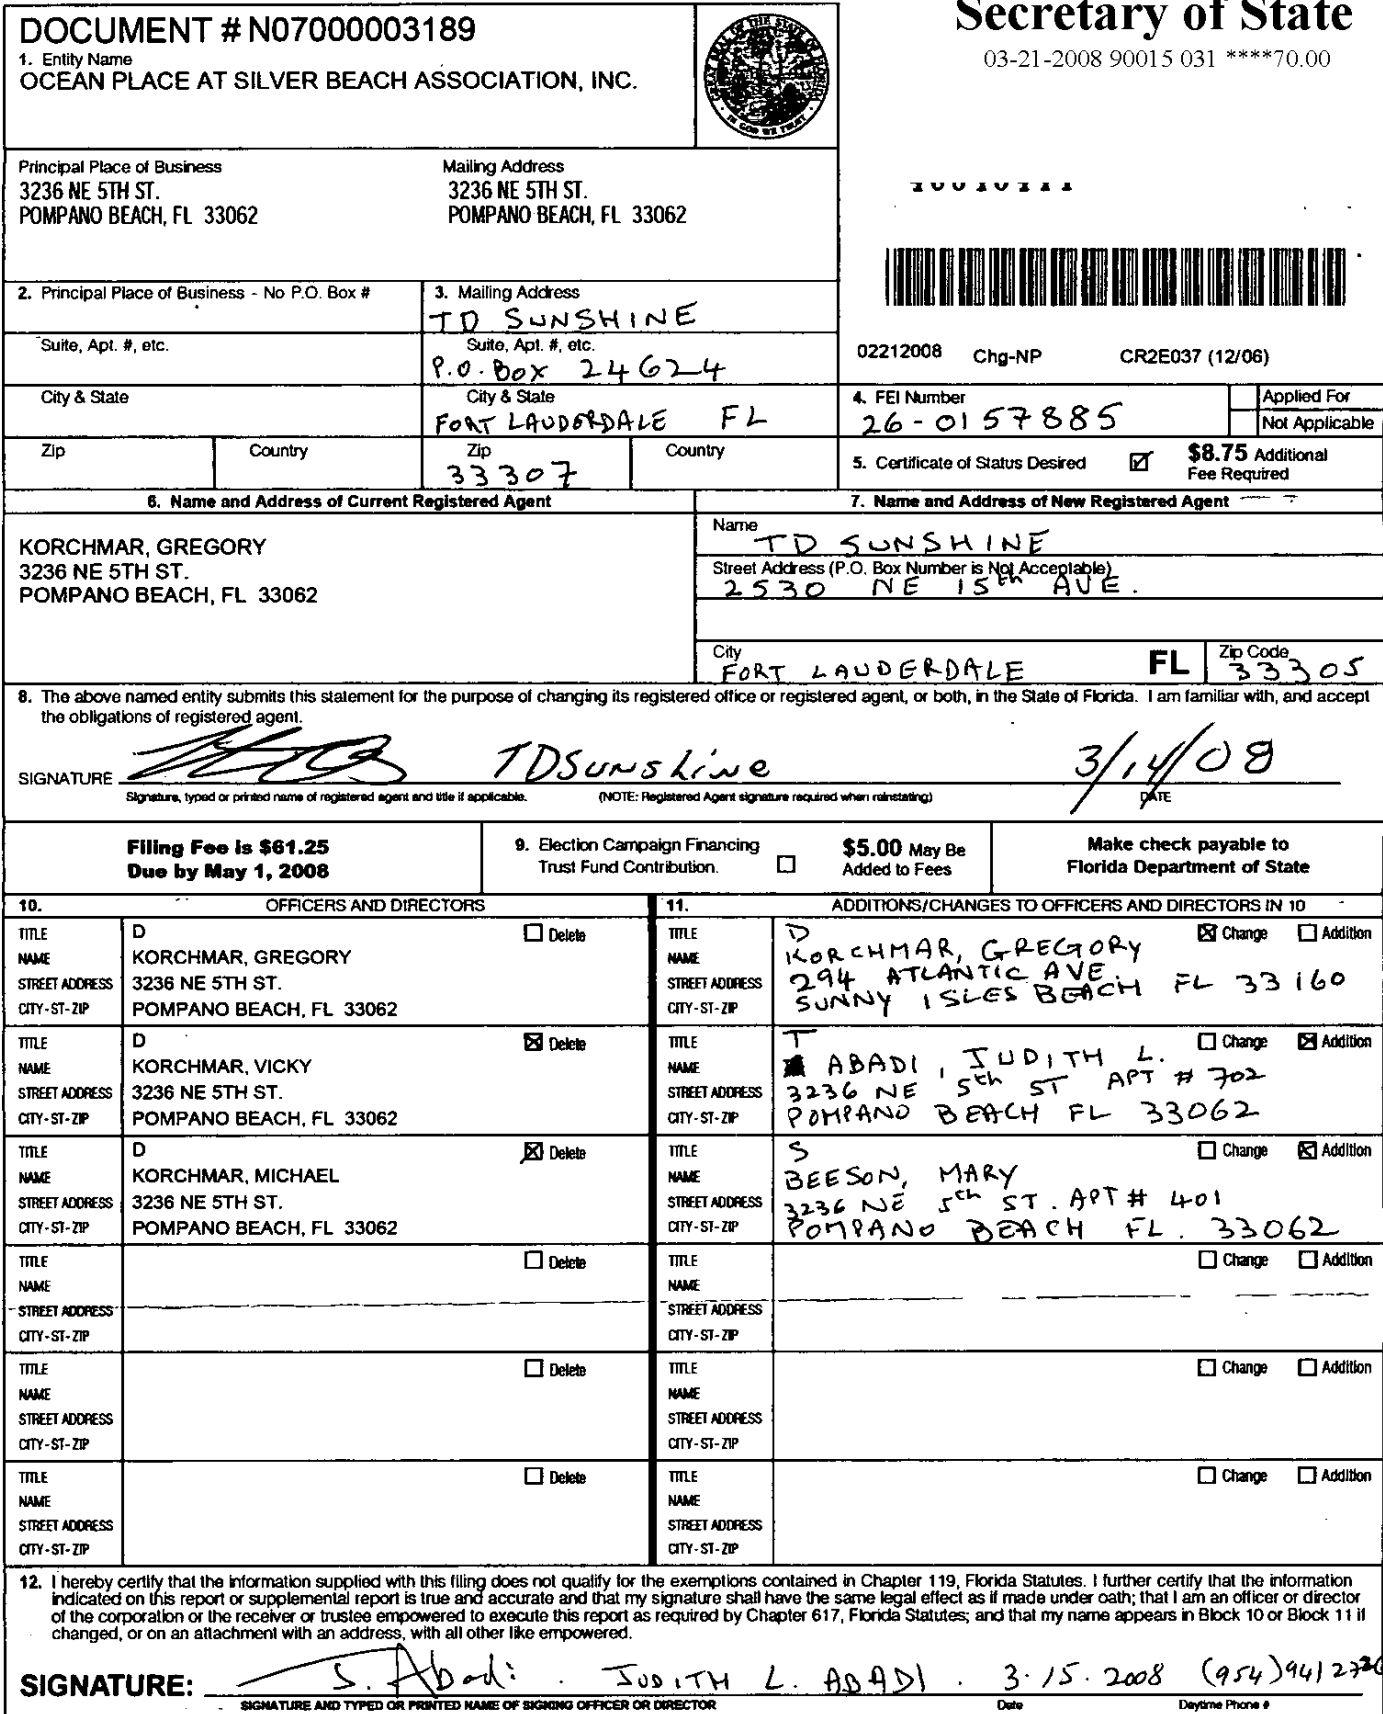 Secretary of State
03-21-2008 90015 031 ****70.00
DOCUMENT # N07000003189
1. Entity Name
OCEAN PLACE AT SILVER BEACH ASSOCIATION, INC.
Principal Place of Business
3236 NE 5TH ST.
POMPANO BEACH, FL 33062
Mailing Address
3236 NE 5TH ST.
POMPANO BEACH, FL 33062
2. Principal Place of Business - No P.O. Box #
3. Mailing Address
TD SUNSHINE
Suite, Apt. #, etc.
Suite, Apt. #, etc.
P.O. Box 24624
City & State
City & State
FORT LAUDERDALE FL
Zip
Country
Zip
33307
Country
02212008 Chg-NP CR2E037 (12/06)
4. FEI Number
26-0157885
Applied For
Not Applicable
5. Certificate of Status Desired
$8.75 Additional
Fee Required
6. Name and Address of Current Registered Agent
KORCHMAR, GREGORY
3236 NE 5TH ST.
POMPANO BEACH, FL 33062
7. Name and Address of New Registered Agent
Name
TD SUNSHINE
Street Address (P.O. Box Number is Not Acceptable)
2530 NE 15th AVE.
City
FORT LAUDERDALE
FL
Zip Code
33305
8. The above named entity submits this statement for the purpose of changing its registered office or registered agent, or both, in the State of Florida. I am familiar with, and accept
the obligations of registered agent.
SIGNATURE TDSunshine 3/14/08
Signature, typed or printed name of registered agent and title if applicable. (NOTE: Registered Agent signature required when reinstating) DATE
Filing Fee is $61.25
Due by May 1, 2008
9. Election Campaign Financing
Trust Fund Contribution.
$5.00 May Be
Added to Fees
Make check payable to
Florida Department of State
10. OFFICERS AND DIRECTORS
11. ADDITIONS/CHANGES TO OFFICERS AND DIRECTORS IN 10
TITLE D Delete
NAME KORCHMAR, GREGORY
STREET ADDRESS 3236 NE 5TH ST.
CITY-ST-ZIP POMPANO BEACH, FL 33062
TITLE D Change Addition
NAME KORCHMAR, GREGORY
STREET ADDRESS 294 ATLANTIC AVE.
CITY-ST-ZIP SUNNY ISLES BEACH FL 33160
TITLE D Delete
NAME KORCHMAR, VICKY
STREET ADDRESS 3236 NE 5TH ST.
CITY-ST-ZIP POMPANO BEACH, FL 33062
TITLE T Change Addition
NAME ABADI, JUDITH L.
STREET ADDRESS 3236 NE 5th ST APT # 702
CITY-ST-ZIP POMPANO BEACH FL 33062
TITLE D Delete
NAME KORCHMAR, MICHAEL
STREET ADDRESS 3236 NE 5TH ST.
CITY-ST-ZIP POMPANO BEACH, FL 33062
TITLE S Change Addition
NAME BEESON, MARY
STREET ADDRESS 3236 NE 5th ST. APT # 401
CITY-ST-ZIP POMPANO BEACH FL. 33062
TITLE Delete
NAME
STREET ADDRESS
CITY-ST-ZIP
TITLE Change Addition
NAME
STREET ADDRESS
CITY-ST-ZIP
TITLE Delete
NAME
STREET ADDRESS
CITY-ST-ZIP
TITLE Change Addition
NAME
STREET ADDRESS
CITY-ST-ZIP
TITLE Delete
NAME
STREET ADDRESS
CITY-ST-ZIP
TITLE Change Addition
NAME
STREET ADDRESS
CITY-ST-ZIP
12. I hereby certify that the information supplied with this filing does not qualify for the exemptions contained in Chapter 119, Florida Statutes. I further certify that the information
indicated on this report or supplemental report is true and accurate and that my signature shall have the same legal effect as if made under oath; that I am an officer or director
of the corporation or the receiver or trustee empowered to execute this report as required by Chapter 617, Florida Statutes; and that my name appears in Block 10 or Block 11 if
changed, or on an attachment with an address, with all other like empowered.
SIGNATURE: J. Abadi . JUDITH L. ABADI . 3.15.2008 (954)941
SIGNATURE AND TYPED OR PRINTED NAME OF SIGNING OFFICER OR DIRECTOR Date Daytime Phone #